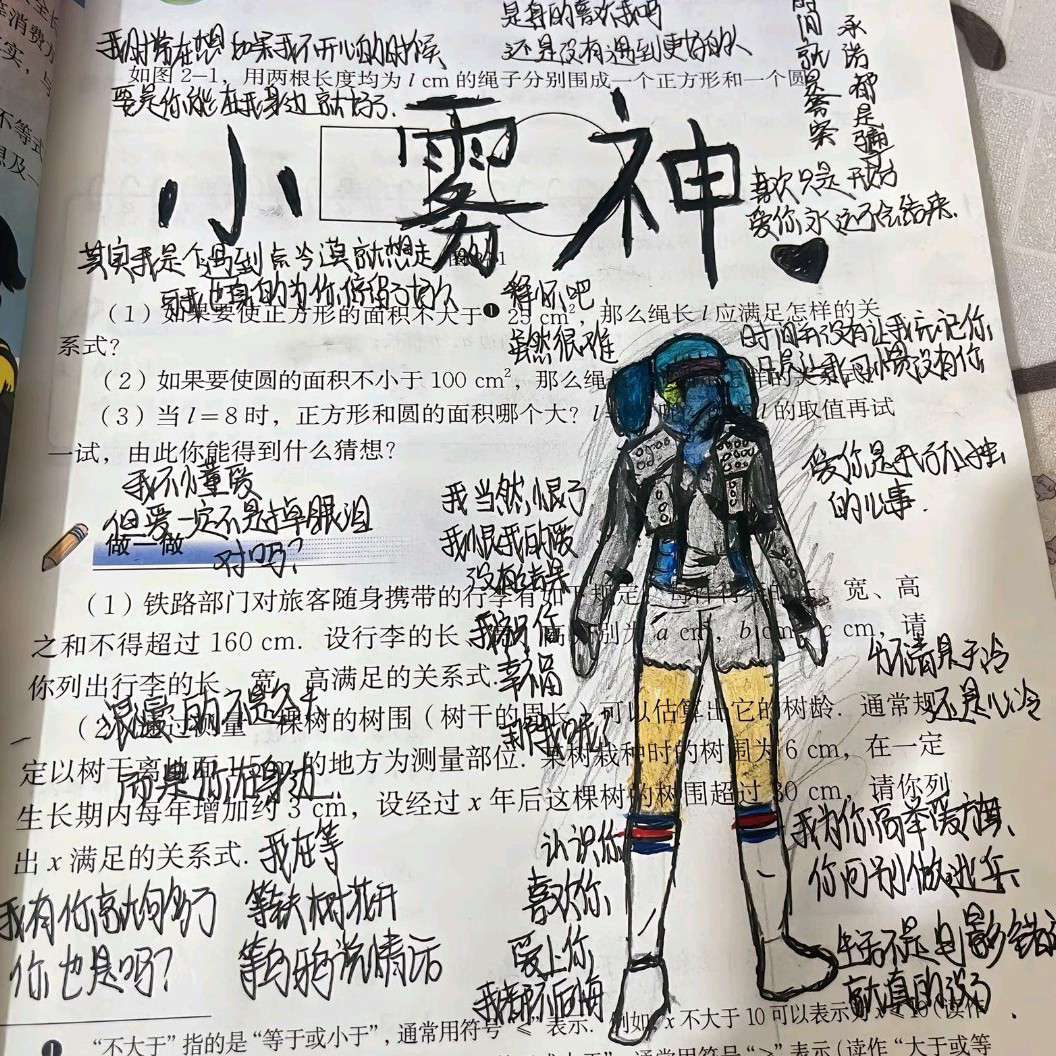 是真的喜欢我吗
还是没有遇到更好的人
我时常在想如果我不开心的时候
要是你能在我身边就好了.
时间就是答案
承诺都是骗
如图2-1，用两根长度均为 l cm 的绳子分别围成一个正方形和一个圆
小雾神
喜欢只是开始
爱你永远不会结束.
其实我是个遇到点冷漠就想走的人
可我也真的为你停留了好久
释怀吧
虽然很难
（1）如果要使正方形的面积不大于❶ 25 cm²，那么绳长 l 应满足怎样的关
系式？
时间并没有让我忘记你
只是让我习惯没有你
（2）如果要使圆的面积不小于 100 cm²，那么绳
（3）当 l＝8 时，正方形和圆的面积哪个大？
l 的取值再试
一试，由此你能得到什么猜想？
我不懂爱
但爱一定不是掉眼泪
对吗？
我当然恨了
我恨我的爱
没有结果
我祝你
幸福
那我呢？
爱你是我的孤独
的心事.
做一做
（1）铁路部门对旅客随身携带的行李有如
宽、高
之和不得超过 160 cm．设行李的长、
a cm，b cm，c cm，请
你列出行李的长、宽、高满足的关系式．
分不清是天冷
还是心冷
浪漫的不是冬天
而是你在身边.
（2）通过测量一棵树的树围（树干的周长）可以估算出它的树龄．通常规
定以树干离地面 1.5 m 的地方为测量部位．某树栽种时的树围为 6 cm，在一定
生长期内每年增加约 3 cm，设经过 x 年后这棵树的树围超过 30 cm，请你列
出 x 满足的关系式．
我在等
等铁树花开
等乌鸦说情话
我有你高大的多了
你也是吗？
认识你
喜欢你
爱上你
我都不后悔
我为你高举爱旗、
你可别做逃兵
生活不是电影
❶ “不大于”指的是“等于或小于”，通常用符号“≤”表示．例如，x 不大于 10 可以表示为 x≤10（读作
通常用符号“≥”表示（读作“大于或等